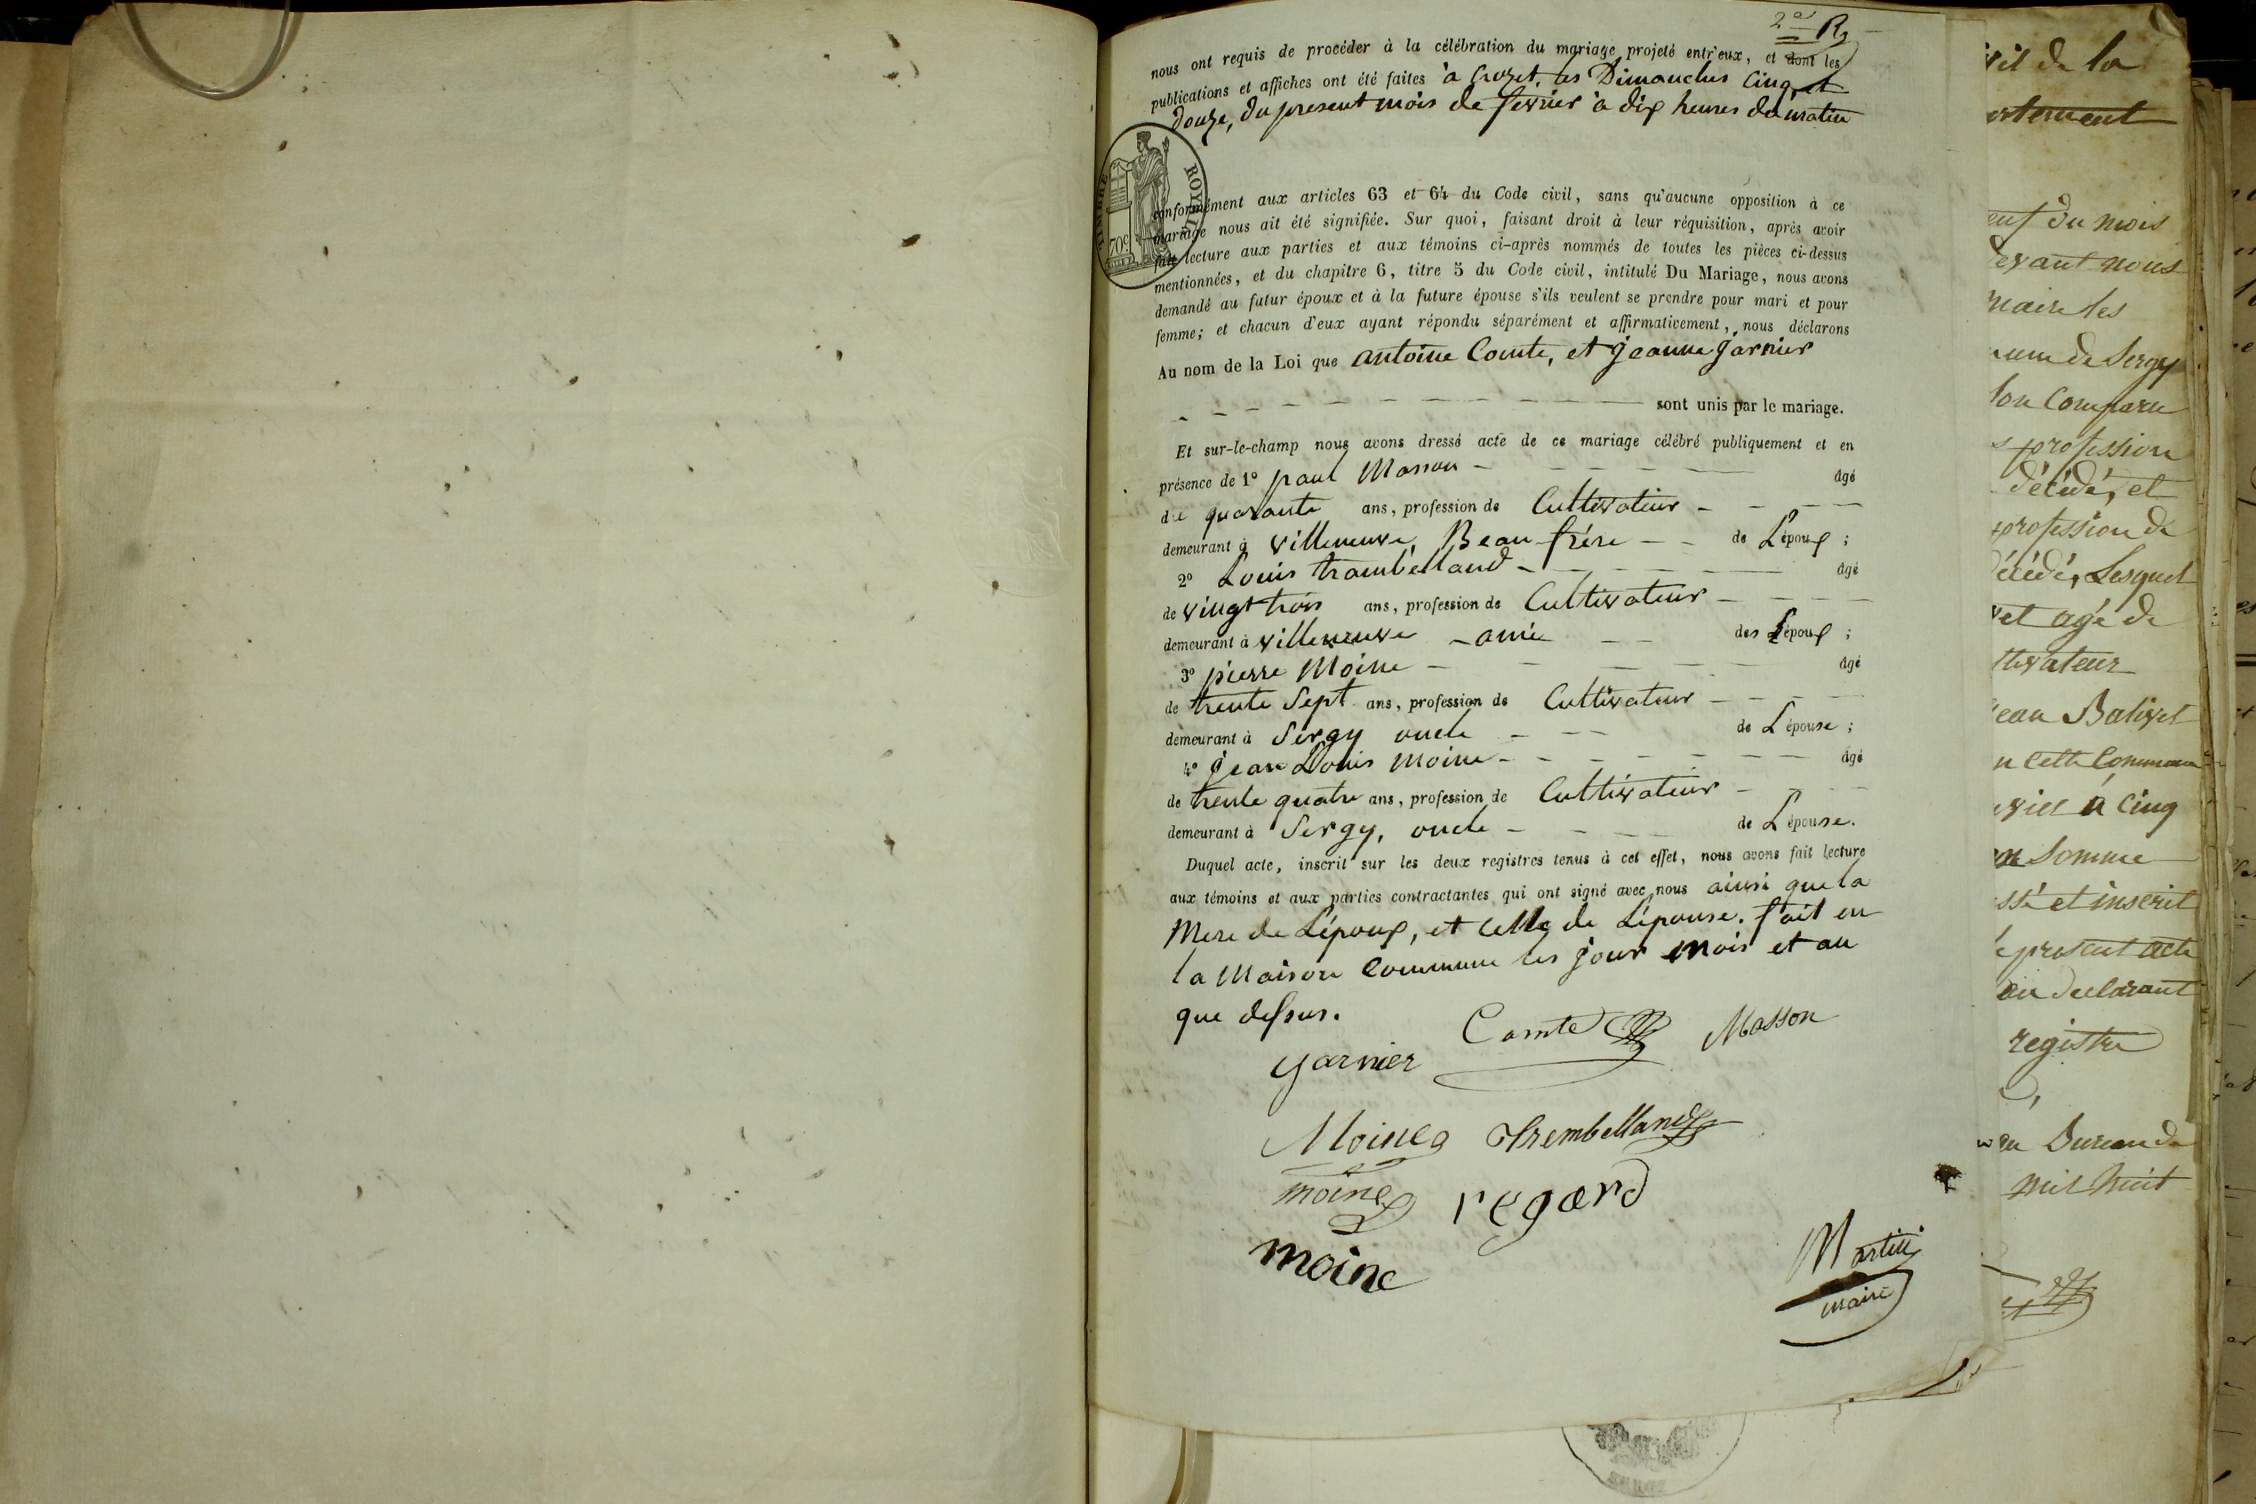 2d R
nous ont requis de procéder à la célébration du mariage projeté entr'eux, et dont les
publications et affiches ont été faites à Crozet, les Dimanches cinq, et
douze, du present mois de février à dix heures du matin
TIMBRE ROYAL
70c
conformément aux articles 63 et 64 du Code civil, sans qu'aucune opposition à ce
mariage nous ait été signifiée. Sur quoi, faisant droit à leur réquisition, après avoir
fait lecture aux parties et aux témoins ci-après nommés de toutes les pièces ci-dessus
mentionnées, et du chapitre 6, titre 5 du Code civil, intitulé Du Mariage, nous avons
demandé au futur époux et à la future épouse s'ils veulent se prendre pour mari et pour
femme; et chacun d'eux ayant répondu séparément et affirmativement, nous déclarons
Au nom de la Loi que antoine Comte, et jeanne garnier
sont unis par le mariage.
Et sur-le-champ nous avons dressé acte de ce mariage célébré publiquement et en
présence de 1° paul Masson âgé
de quarante ans, profession de Cultivateur
demeurant à villeneuve, Beau frère de L'époux ;
2° Louis trambelland âgé
de vingt trois ans, profession de Cultivateur
demeurant à villeneuve ami des L'époux ;
3° pierre Moine âgé
de trente sept ans, profession de Cultivateur
demeurant à Sergy oncle de L'épouse ;
4° jean Louis moine âgé
de trente quatre ans, profession de Cultivateur
demeurant à Sergy, oncle de L'épouse.
Duquel acte, inscrit sur les deux registres tenus à cet effet, nous avons fait lecture
aux témoins et aux parties contractantes qui ont signé avec nous ainsi que la
Mere de L'époux, et celle de L'épouse. fait en
la Maison Commune les jour mois et an
que dessus.
Comte Masson
garnier
Moine Trembelland
moine regard
moine
Martin
maire
vil de la
artement
du mois
devant nous
maire les
de Sergy
Comparu
profession
décédé, et
profession de
décédé, Lesquel
et agé de
tivateur
Jean Balivet
cette Commune
à cinq
somme
et inscrit
present acte
declarant
registre
Bureau de
mil huit